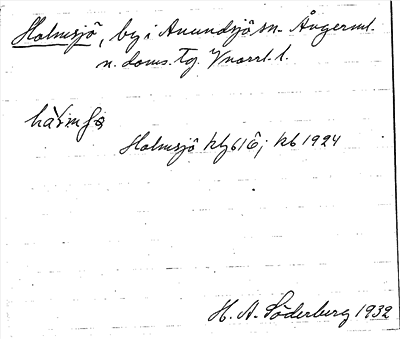 Holmsjö, by i Anundsjö sn. Ångerml.
n. doms. tg. Vnorrl. l.
Holmsjö Hlj 616; Kb 1924
H. A. Söderberg 1932